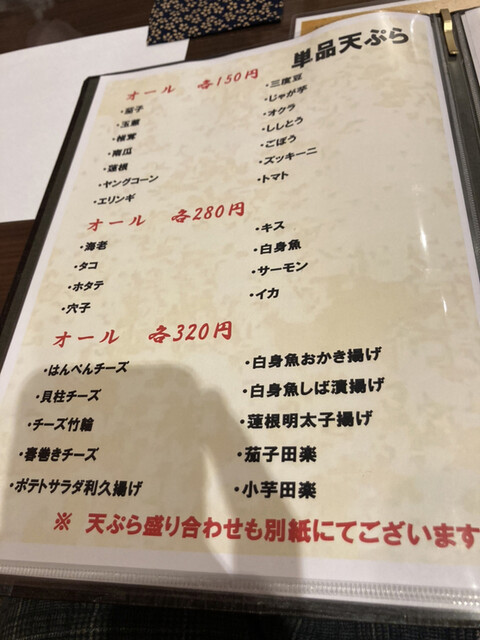 単品天ぷら
オール 各150円
・茄子
・玉葱
・椎茸
・南瓜
・蓮根
・ヤングコーン
・エリンギ
・三度豆
・じゃが芋
・オクラ
・ししとう
・ごぼう
・ズッキーニ
・トマト
オール 各280円
・海老
・タコ
・ホタテ
・穴子
・キス
・白身魚
・サーモン
・イカ
オール 各320円
・はんぺんチーズ
・貝柱チーズ
・チーズ竹輪
・春巻きチーズ
・ポテトサラダ利久揚げ
・白身魚おかき揚げ
・白身魚しば漬揚げ
・蓮根明太子揚げ
・茄子田楽
・小芋田楽
※ 天ぷら盛り合わせも別紙にてございます